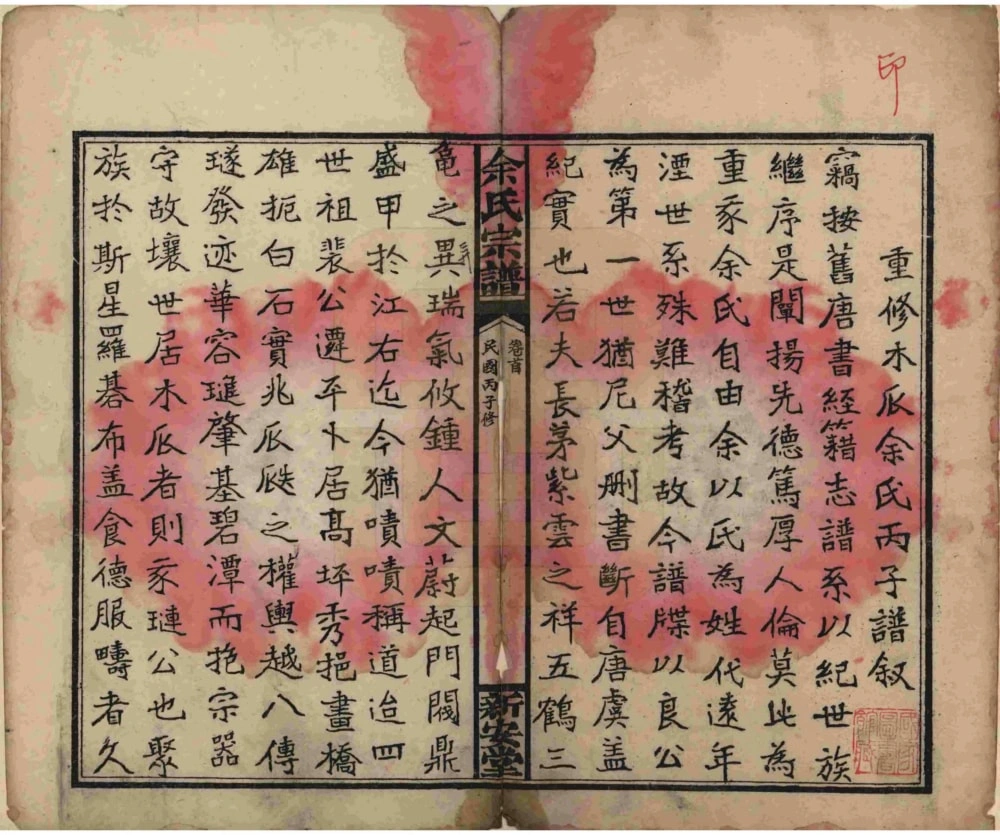 印
重修木瓜余氏丙子譜叙
竊按舊唐書經籍志譜系以紀世族
繼序是闡揚先德篤厚人倫莫此為
重我余氏自由余以氏為姓代遠年
湮世系殊難稽考故今譜牒以良公
為第一世猶尼父刪書斷自唐虞盖
紀實也若夫長茅紫雲之祥五鶴三
余氏宗譜
卷首
民國丙子修
新安堂
龜之異瑞氣攸鍾人文蔚起門閥鼎
盛甲於江右迄今猶嘖嘖稱道迨四
世祖裴公遷平卜居髙坪秀挹畫橋
雄扼白石實兆瓜瓞之權輿越八傳
璲發迹華容璡肇基碧潭而抱宗器
守故壤世居木瓜者則豕璉公也聚
族於斯星羅碁布盖食德服疇者久